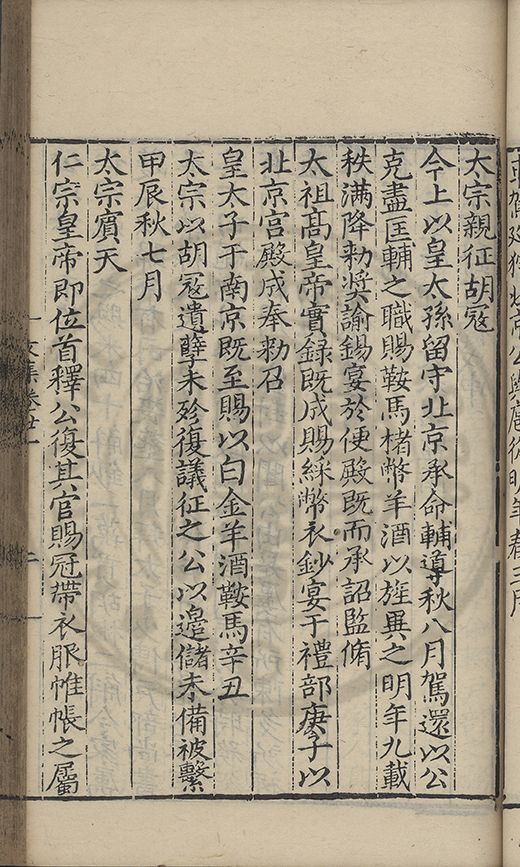 車駕廵狩北京公與扈從明年春三月
太宗親征胡冦
今上以皇太孫留守北京承命輔導秋八月駕還以公
克盡匡輔之職賜鞍馬楮幣羊酒以旌異之明年九載
秩滿降勑奨諭錫宴於便殿既而承詔監脩
太祖髙皇帝實録既成賜綵幣衣鈔宴于禮部庚子以
北京宫殿成奉勑召
皇太子于南京既至賜以白金羊酒鞍馬辛丑
太宗以胡冦遺孽未殄復議征之公以邉儲未備被繫
甲辰秋七月
太宗賓天
仁宗皇帝即位首釋公復其官賜冠帶衣服帷帳之屬
文集卷廿一
二